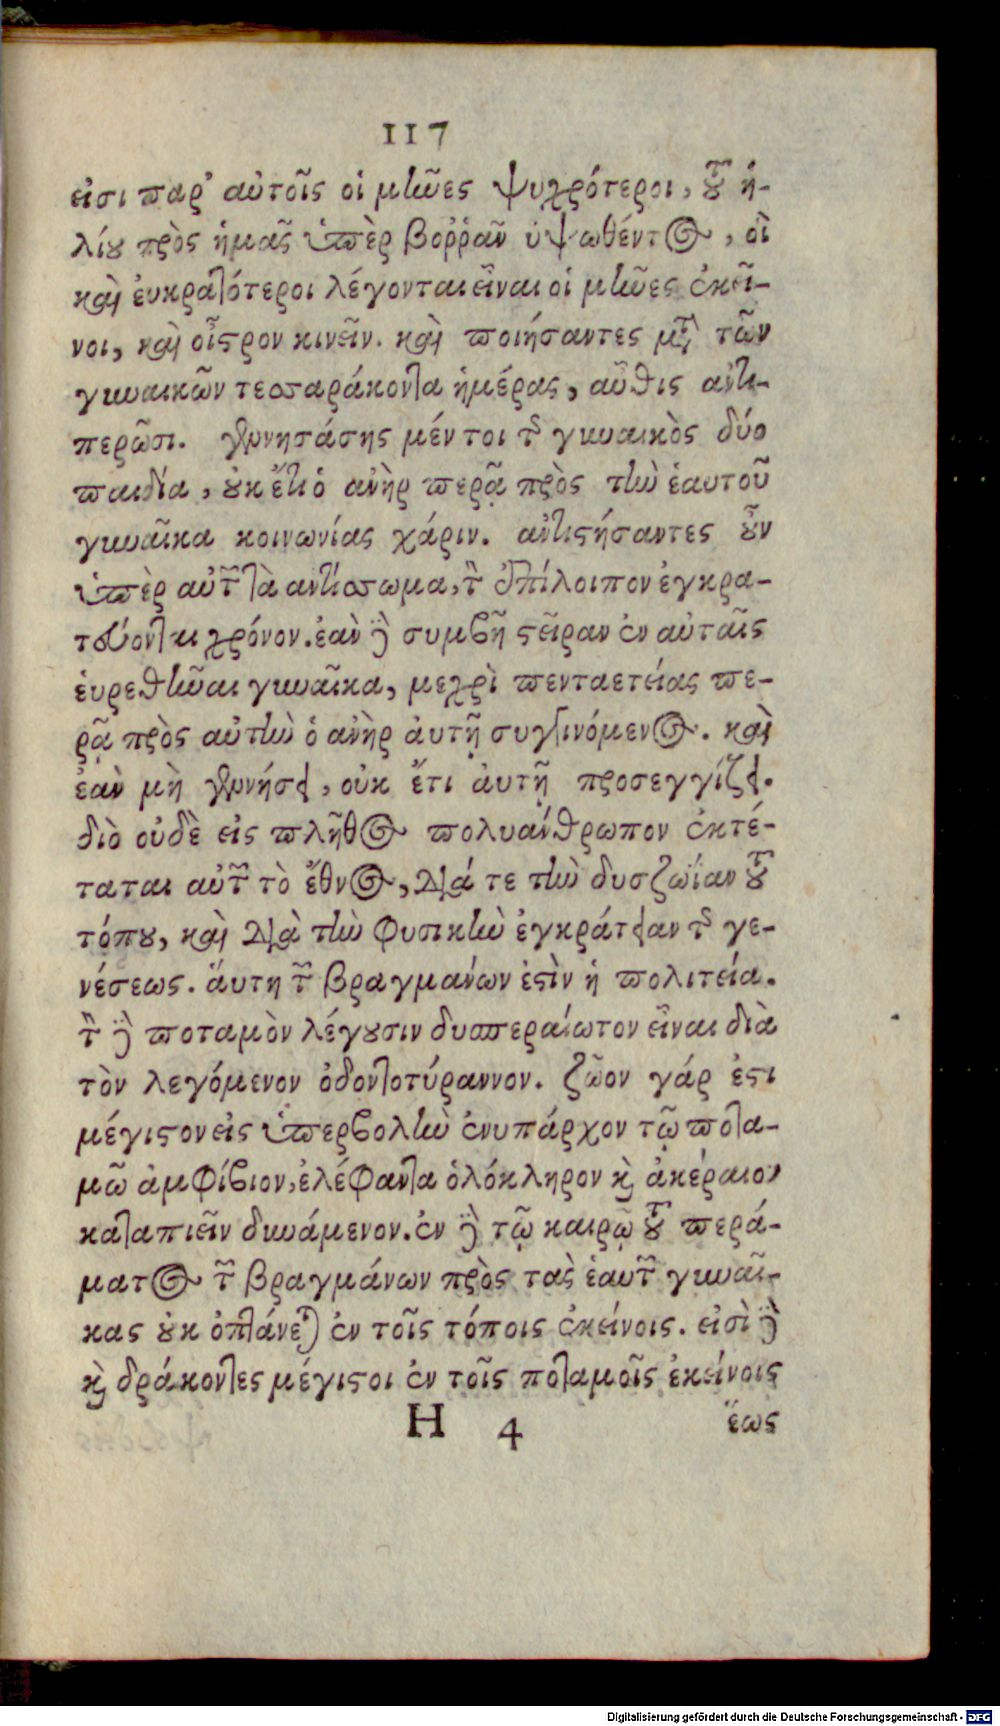 117
εἰσι παρ' αὐτοῖς οἱ μῆνες ψυχρότεροι, τοῦ ἡ-
λίου πρὸς ἡμᾶς ὑπὲρ βοῤῥᾶν ὑψωθέντος, οἳ
καὶ ἐυκρατότεροι λέγονται εἶναι οἱ μῆνες ἐκεῖ-
νοι, καὶ οἶστρον κινεῖν. καὶ ποιήσαντες μετὰ τῶν
γυναικῶν τεσσαράκοντα ἡμέρας, αὖθις αντι-
περῶσι. γεννησάσης μέν τοι τῆς γυναικὸς δύο
παιδία, οὐκ ἔτι ὁ ανὴρ περᾷ πρὸς τὴν ἑαυτοῦ
γυναῖκα κοινωνίας χάριν. αντιστήσαντες οὖν
ὑπὲρ αὐτῶν τὰ αντίσσωμα, τὸν ἐπίλοιπον ἐγκρα-
τεύονται χρόνον. ἐαν δὲ συμβῇ στεῖραν ἐν αὐταῖς
ἑυρεθῆναι γυναῖκα, μεχρὶ πενταετείας πε-
ρᾷ πρὸς αὐτὴν ὁ ανὴρ ἀυτῇ συγγινόμενος. καὶ
ἐαν μὴ γεννήσει, οὐκ ἔτι ἀυτῇ προσεγγίζει.
διὸ οὐδὲ εἰς πλῆθος πολυάνθρωπον ἐκτέ-
ταται αὐτῶν τὸ ἔθνος, διά τε τὴν δυσζωΐαν τοῦ
τόπου, καὶ διὰ τὴν φυσικὴν ἐγκράτειαν τῆς γε-
νέσεως. ἅυτη τῶν βραγμάνων ἐστὶν ἡ πολιτεία.
τὸν δὲ ποταμὸν λέγουσιν δυσπεραίωτον εἶναι διὰ
τὸν λεγόμενον ὀδοντοτύραννον. ζῶον γάρ ἐστι
μέγιστον εἰς ὑπερβολὴν ἐνυπάρχον τῷ ποτα-
μῶ ἀμφίβιον, ἐλέφαντα ὁλόκληρον καὶ ἀκέραιον
καταπιεῖν δυνάμενον. ἐν δὲ τῷ καιρῷ τοῦ περά-
ματος τῶν βραγμάνων πρὸς τὰς ἑαυτῶν γυναῖ-
κας οὐκ ὀπτάνεται ἐν τοῖς τόποις ἐκείνοις. εἰσὶ δὲ
καὶ δράκοντες μέγιστοι ἐν τοῖς ποταμοῖς ἐκείνοις
H 4 ἕως
Digitalisierung gefördert durch die Deutsche Forschungsgemeinschaft - DFG